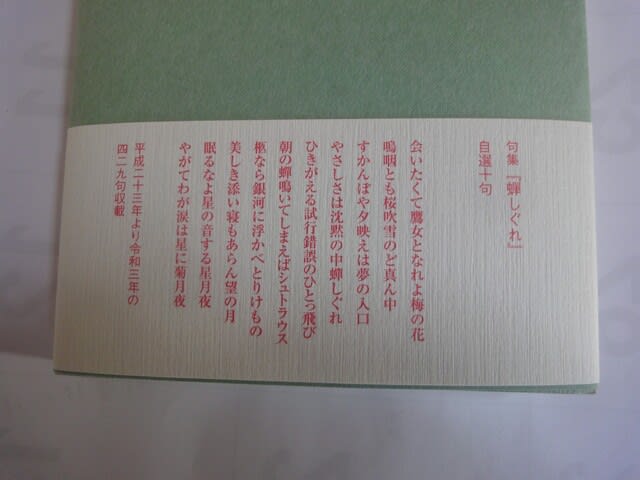 句集『蟬しぐれ』
自選十句
会いたくて鷹女となれよ梅の花
嗚咽とも桜吹雪のど真ん中
すかんぽや夕映えは夢の入口
やさしさは沈黙の中蟬しぐれ
ひきがえる試行錯誤のひとっ飛び
朝の蟬鳴いてしまえばシュトラウス
柩なら銀河に浮かべとりけもの
美しき添い寝もあらん望の月
眠るなよ星の音する星月夜
やがてわが涙は星に菊月夜
平成二十三年より令和三年の
四二九句収載